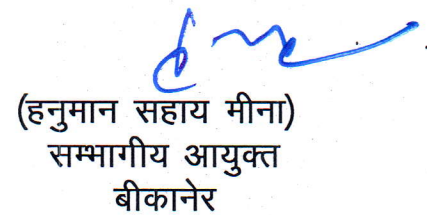 (हनुमान सहाय मीना)
सम्भागीय आयुक्त
बीकानेर